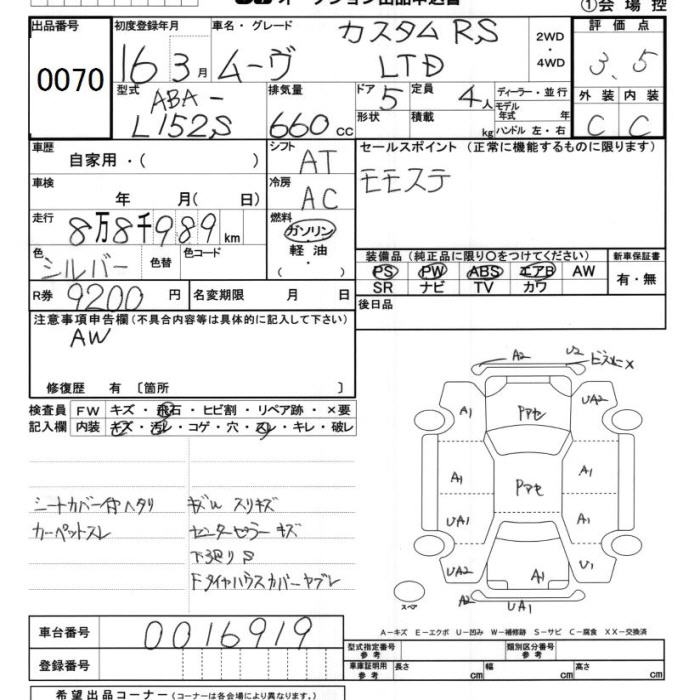 オークション出品申込書 ①会場控
出品番号 初度登録年月 車名・グレード カスタムRS 2WD ・ 4WD 評価点
0070 16 3月 ムーヴ LTD 3.5
型式 ABA- L152S 排気量 660 cc ドア 5 定員 4人 ディーラー・並行 外装 内装
形状 積載 kg モデル年式 年 ハンドル 左・右 C C
車歴 自家用・( ) シフト AT セールスポイント(正常に機能するものに限ります)
車検 年 月( 日) 冷房 AC モモステ
走行 8万8千989km 燃料 ガソリン
色 シルバー 色替 色コード 軽油 ・( ) 装備品(純正品に限り〇をつけてください) 新車保証書
PS PW ABS エアB AW 有・無
SR ナビ TV カワ
R券 9200円 名変期限 月 日 後日品
注意事項申告欄(不具合内容等は具体的に記入して下さい)
AW
修復歴 有 [箇所 ]
検査員 FW キズ・飛石・ヒビ割・リペア跡・×要
記入欄 内装 キズ・汚レ・コゲ・穴・スレ・キレ・破レ
A2 U2
A1 Pアセ UA2
A1 Pアセ A1
UA1 A1
UA2 A1 U1
スペア A2 UA1
シートカバー付ヘタリ キズW スリキズ
カーペットスレ センターピラーキズ
下廻りS
Fタイヤハウスカバーヤブレ
A-キズ E-エクボ U-凹み W-補修跡 S-サビ C-腐食 XX-交換済
車台番号 0016919
登録番号
型式指定番号 参考 類別区分番号 参考
車庫証明用 参考 長さ cm 幅 cm 高さ cm
希望出品コーナー(コーナーは各会場により異なります。)